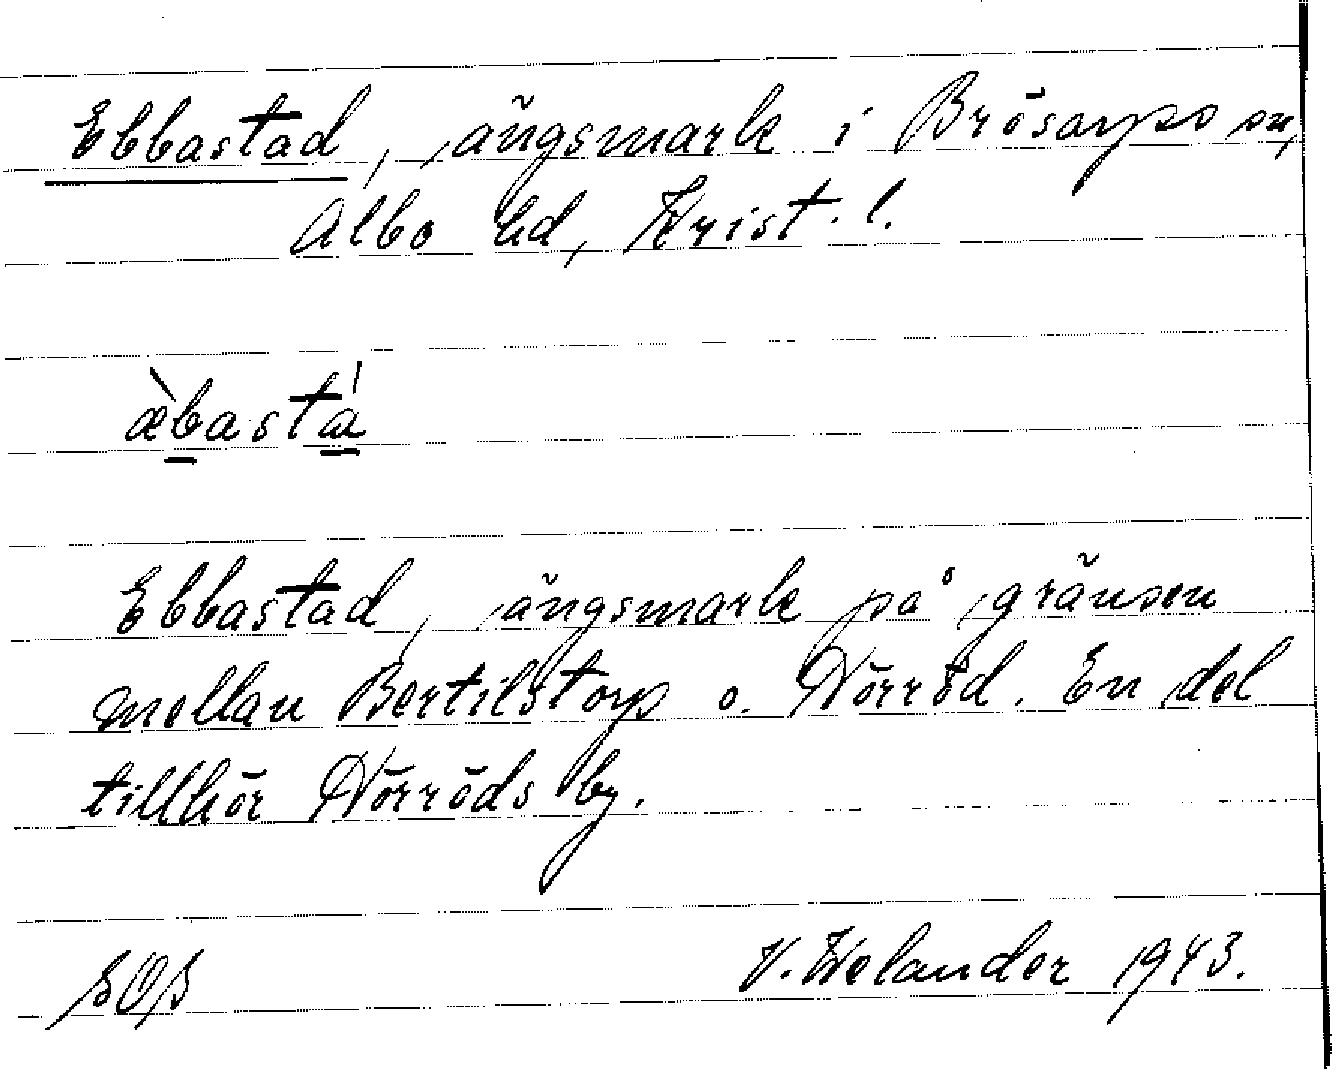 Ebbastad, ängsmark i Brösarps sn,
Albo hd, Krist. l.
æ̀bastá
Ebbastad, ängsmark på gränsen
mellan Bertilstorp o. Nörröd. En del
tillhör Nörröds by.
V. Welander 1943.